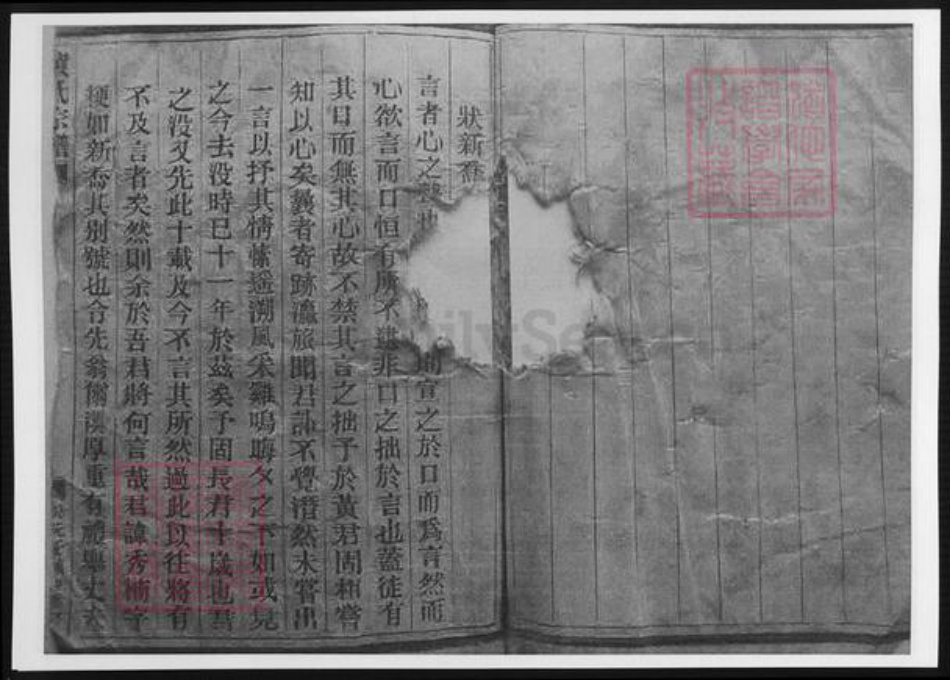 狀新喬
言者心之聲也 宣之於口而爲言然而
心欲言而口恒有所不逮非口之拙於言也蓋徒有
其口而無其心故不禁其言之拙予於黃君固相嘗
知以心矣曩者寄跡瀛旅聞君訃不覺潸然未嘗出
一言以抒其情愫遥溯風采雞鳴晦夕之下如或見
之今去没時已十一年於茲矣予固長君十歲也君
之没又先此十載及今不言其所然過此以往將有
不及言者矣然則余於吾君將何言哉君諱秀 字
梗如新喬其別號也合先翁 厚重有禮 丈夫
氏宗譜